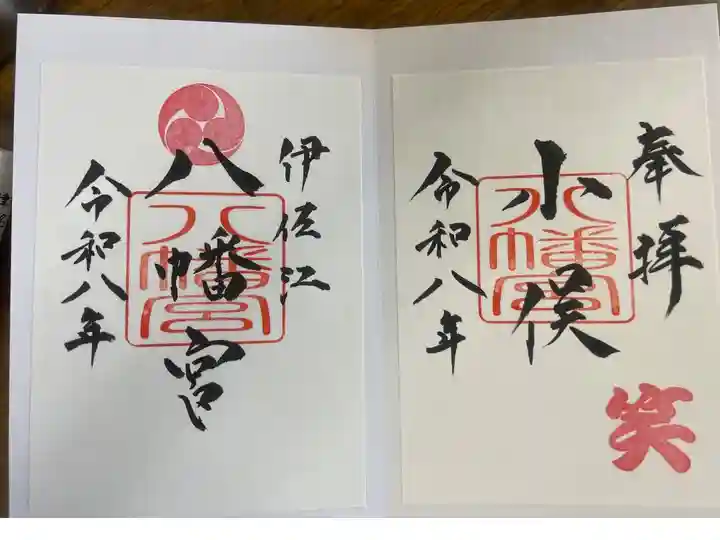 奉拝
小俣
八幡宮
令和八年
笑
伊佐江
八幡宮
八幡宮
令和八年